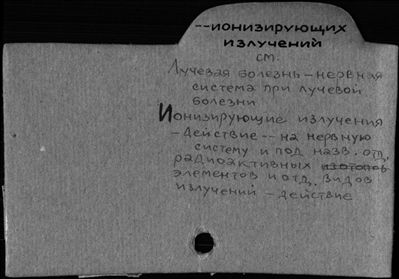 --ионизирующих
излучений
см.
Лучевая болезнь - нервная
система при лучевой
болезни
Ионизирующие излучения
- действие -- на нервную
систему и под назв. отд.
радиоактивных изотопов
элементов и отд. видов
излучений - действие